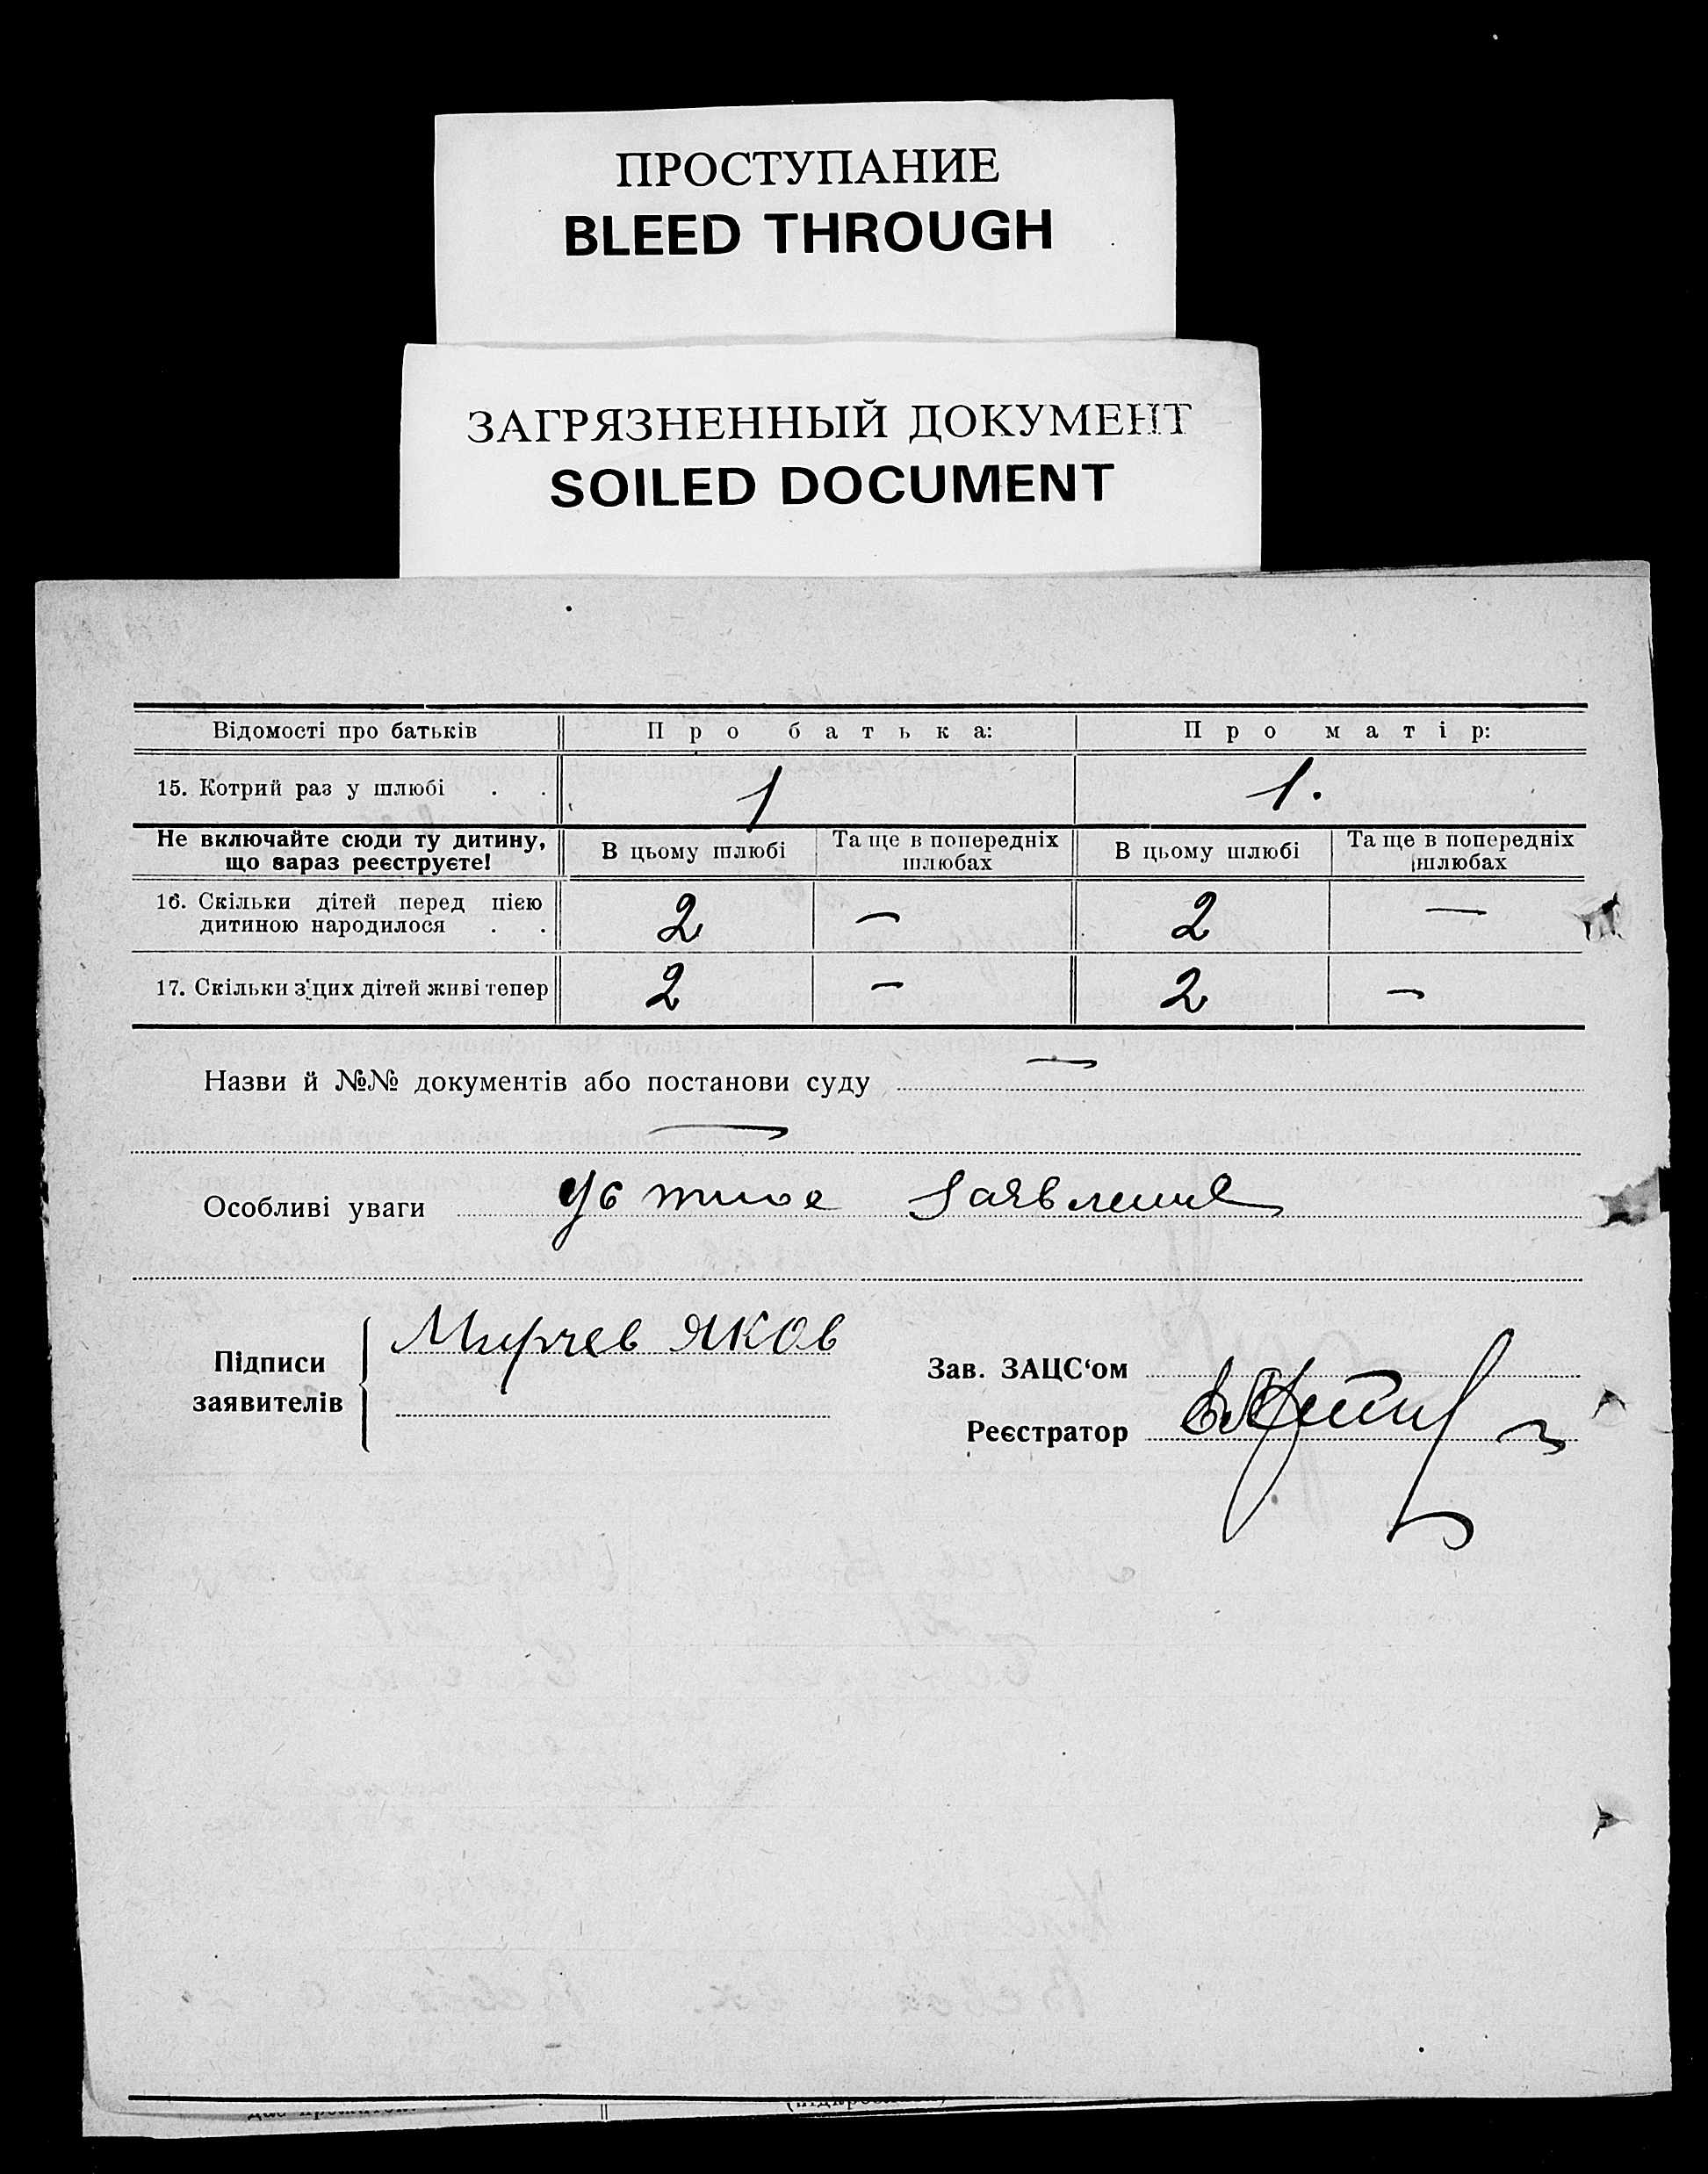 ПРОСТУПАНИЕ
BLEED THROUGH
ЗАГРЯЗНЕННЫЙ ДОКУМЕНТ
SOILED DOCUMENT
Відомості про батьків Про батька: Про матір:
15. Котрий раз у шлюбі . . 1 1.
Не включайте сюди ту дитину, що зараз реєструєте! В цьому шлюбі Та ще в попередніх шлюбах В цьому шлюбі Та ще в попередніх шлюбах
16. Скільки дітей перед цією дитиною народилося . . 2 — 2 —
17. Скільки з цих дітей живі тепер 2 — 2 —
Назви й №№ документів або постанови суду —
—
Особливі уваги Устное заявление
Підписи заявителів
Мирчев Яков
Зав. ЗАЦС‘ом
Реєстратор